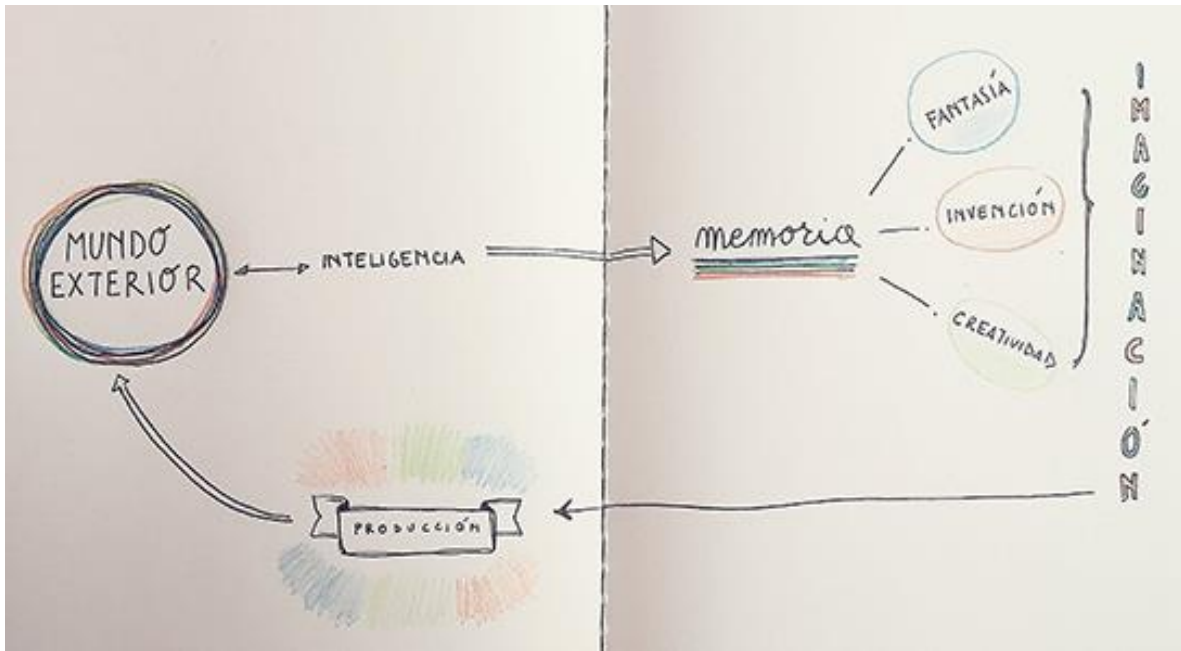 MUNDO
EXTERIOR
INTELIGENCIA
memoria
FANTASÍA
INVENCIÓN
CREATIVIDAD
IMAGINACIÓN
PRODUCCIÓN